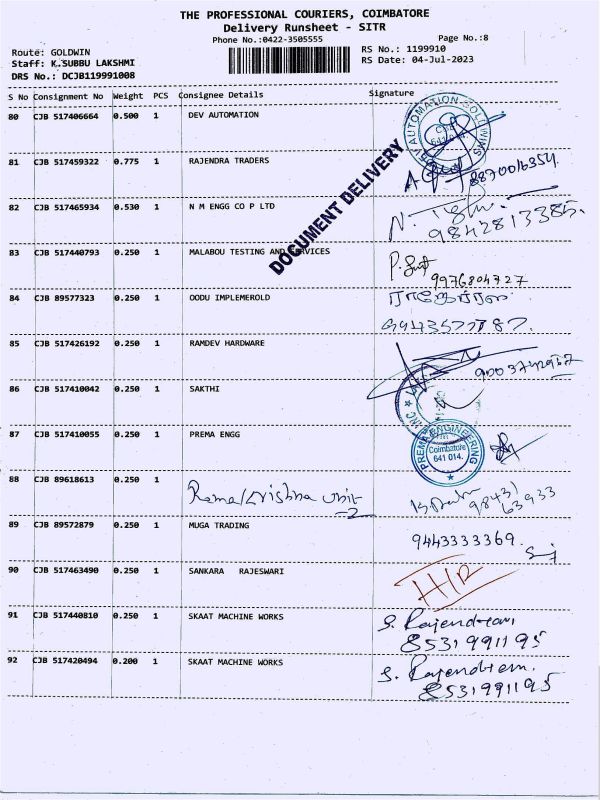 THE PROFESSIONAL COURIERS, COIMBATORE
Delivery Runsheet - SITR
Phone No.:0422-3505555
Page No.:8
Route: GOLDWIN
Staff: K.SUBBU LAKSHMI
DRS No.: DCJB119991008
RS No.: 1199910
RS Date: 04-Jul-2023
S No Consignment No Weight PCS Consignee Details Signature
80 CJB 517406664 0.500 1 DEV AUTOMATION
81 CJB 517459322 0.775 1 RAJENDRA TRADERS 8870016354.
82 CJB 517465934 0.530 1 N M ENGG CO P LTD
9842813385.
DOCUMENT DELIVERY
83 CJB 517440793 0.250 1 MALABOU TESTING AND SERVICES
9976804727
84 CJB 89577323 0.250 1 OODU IMPLEMEROLD
85 CJB 517426192 0.250 1 RAMDEV HARDWARE
86 CJB 517410042 0.250 1 SAKTHI
87 CJB 517410055 0.250 1 PREMA ENGG
PREMA ENGINEERING
Coimbatore
641 014.
88 CJB 89618613 0.250 1 Rama Krishna Unit
-2
98431
63933
89 CJB 89572879 0.250 1 MUGA TRADING 9443333369.
90 CJB 517463490 0.250 1 SANKARA RAJESWARI
91 CJB 517440810 0.250 1 SKAAT MACHINE WORKS S. Rajendran,
8531991195
92 CJB 517420494 0.200 1 SKAAT MACHINE WORKS S. Rajendran.
8531991195